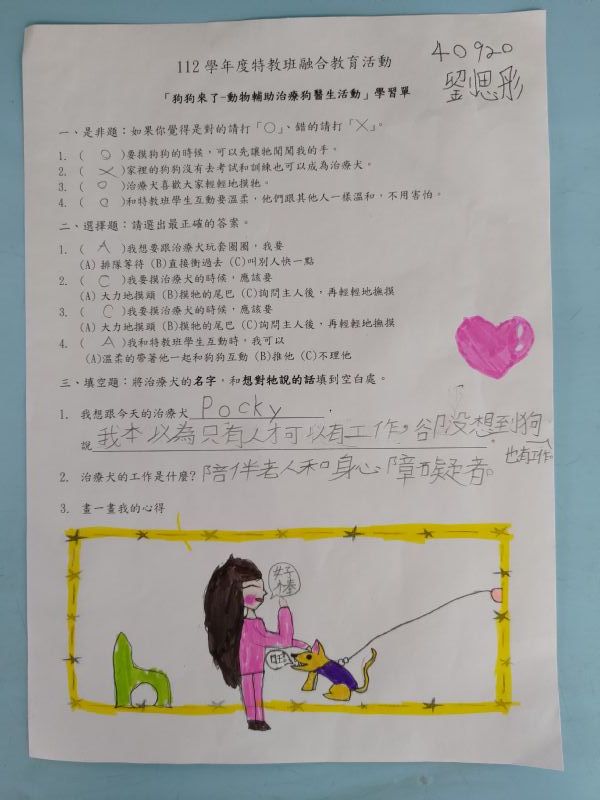 40920
劉思彤
112 學年度特教班融合教育活動
「狗狗來了-動物輔助治療狗醫生活動」學習單
一、是非題：如果你覺得是對的請打「○」、錯的請打「×」。
1. ( ○ )要摸狗狗的時候，可以先讓牠聞聞我的手。
2. ( × )家裡的狗狗沒有去考試和訓練也可以成為治療犬。
3. ( ○ )治療犬喜歡大家輕輕地摸牠。
4. ( ○ )和特教班學生互動要溫柔，他們跟其他人一樣溫和，不用害怕。
二、選擇題：請選出最正確的答案。
1. ( A )我想要跟治療犬玩套圈圈，我要
(A) 排隊等待 (B)直接衝過去 (C)叫別人快一點
2. ( C )我要摸治療犬的時候，應該要
(A) 大力地摸頭 (B)摸牠的尾巴 (C)詢問主人後，再輕輕地撫摸
3. ( C )我要摸治療犬的時候，應該要
(A) 大力地摸頭 (B)摸牠的尾巴 (C)詢問主人後，再輕輕地撫摸
4. ( A )我和特教班學生互動時，我可以
(A)溫柔的帶著他一起和狗狗互動 (B)推他 (C)不理他
三、填空題：將治療犬的名字，和想對牠說的話填到空白處。
1. 我想跟今天的治療犬 Pocky ，
說 我本以為只有人才可以有工作，卻沒想到狗
也有工作。
2. 治療犬的工作是什麼? 陪伴老人和身心障礙者。
3. 畫一畫我的心得
好棒
旺!